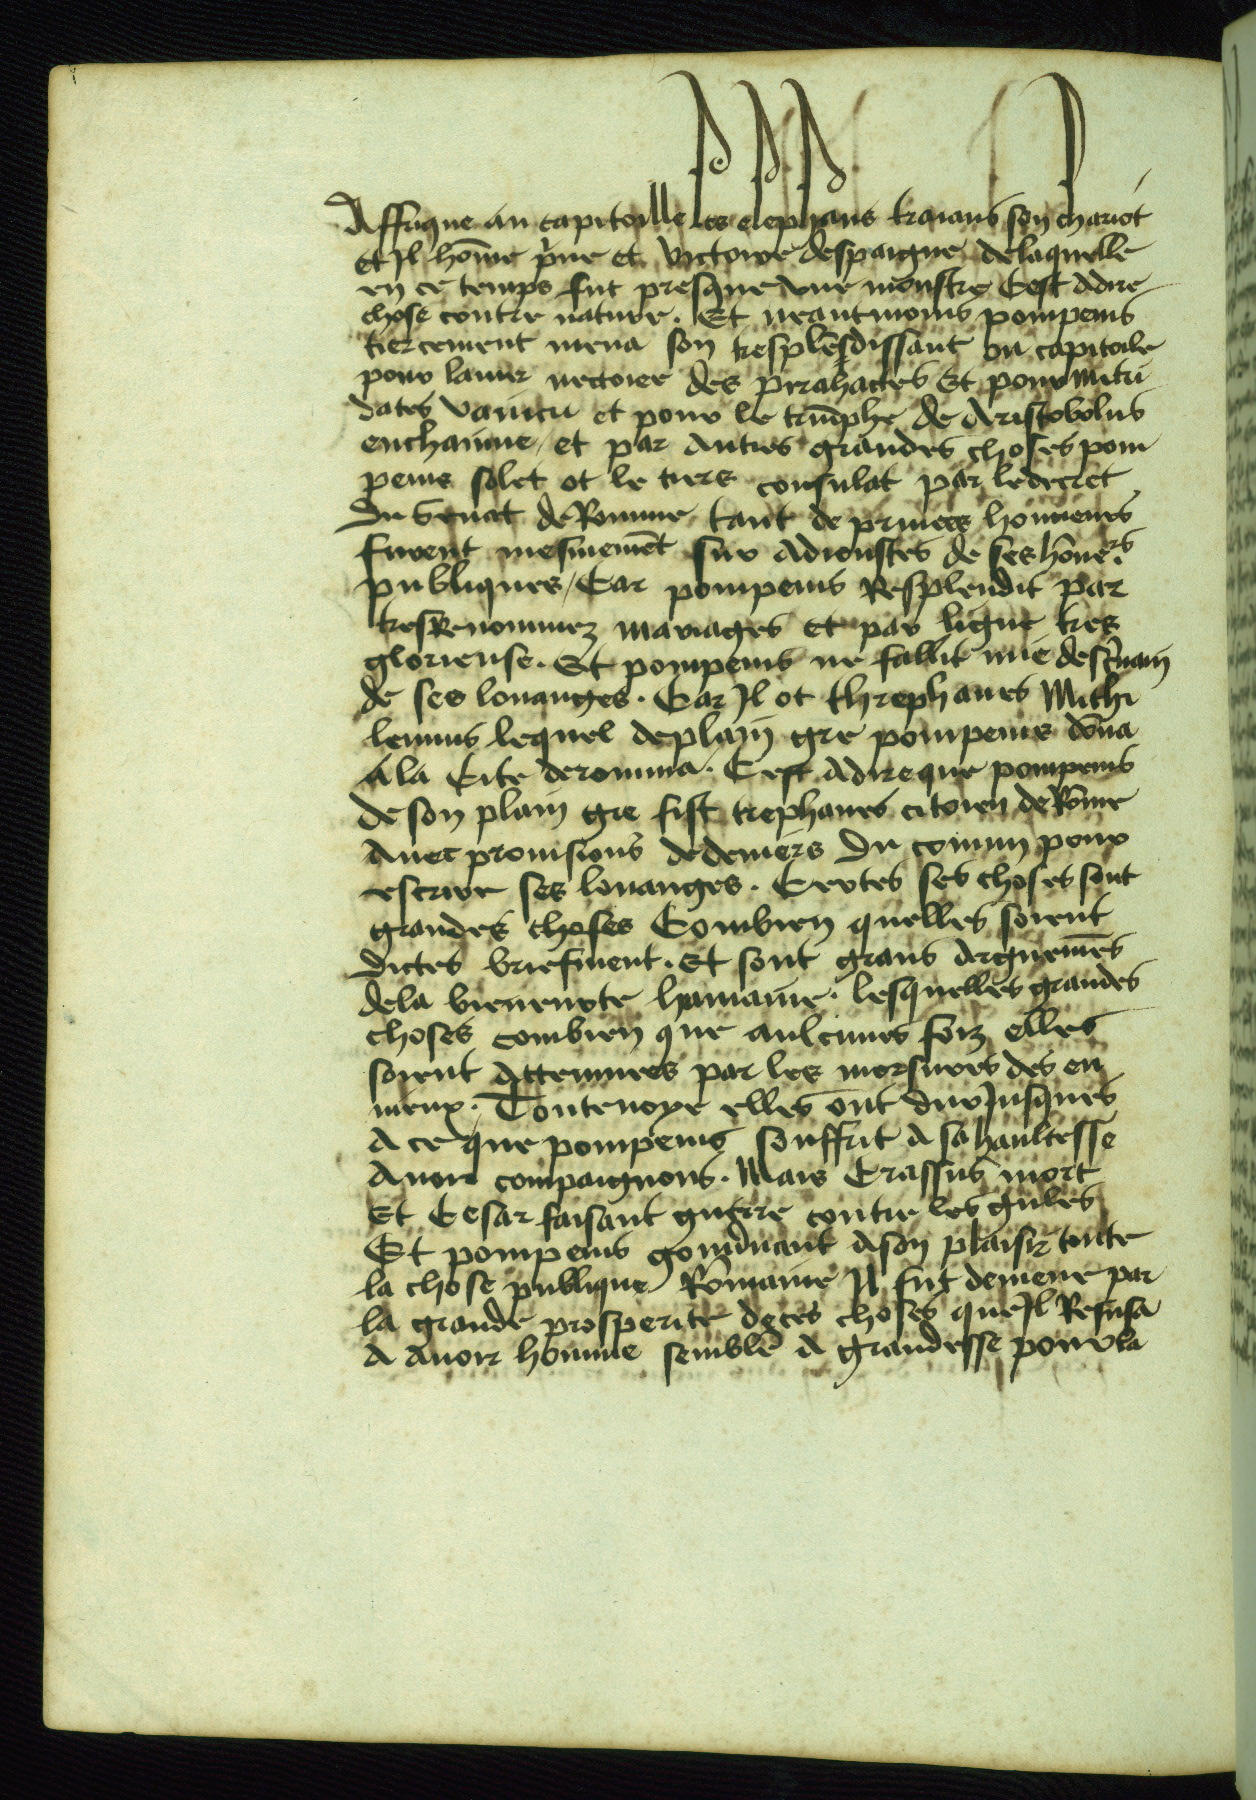 Affrique au capitoille les elephans traians son chariot
et Il home pⁱue et victoire despaigne delaquelle
en ce temps fut presque vne monstre Cest adire
chose contre nature. Et neantmoins pompeius
tiercement mena son resplēdissant ou capitoile
pour lauoir victoire des pirrahactes Et pour mitri
dates vaincu et pour le triūphe de Aristobolus
enchaine / et par autres grandes choses pom
peius solet ot le tiers consulat par ledecret
du Senat de Romme tant de princes honneurs
furent mesmemēt sur adioustes de ses hōneurs
publiques / Car pompeius Resplendit par
tresRenommez mariages et par ligne tres
glorieuse. Et pompeius ne fallit mie descⁱuain
de ses louanges. Car Il ot threphanes Mithi
lenius lequel deplain gre pompeius dōna
a la Cite deromma. Cest adireque pompeius
de son plain gre fist trephanes citoien deRōme
auec prouisions dedeniers du comun pour
escrire ses louanges. Certes ses choses sont
grandes choses Combien quelles soient
dictes briefment. Et sont grans argumēs
dela bieneurte humaine. lesquelles grandes
choses combien que aulcunes foiz elles
soient attenuees par les morsures des en
nieux. Toutenoye elles ont dure Jusques
a ce que pompeius souffrit a sa haultesse
auoir compaignons. Mais Crassus mort
Et Cesar faisant guerre contre les gules
Et pompeius gouuⁱnant ason plaisir toute
la chose publique Rōmaine Il fut demene par
la grande prosperite deces choses queIl Refusa
a auoir homme semblē a grandesse pourla